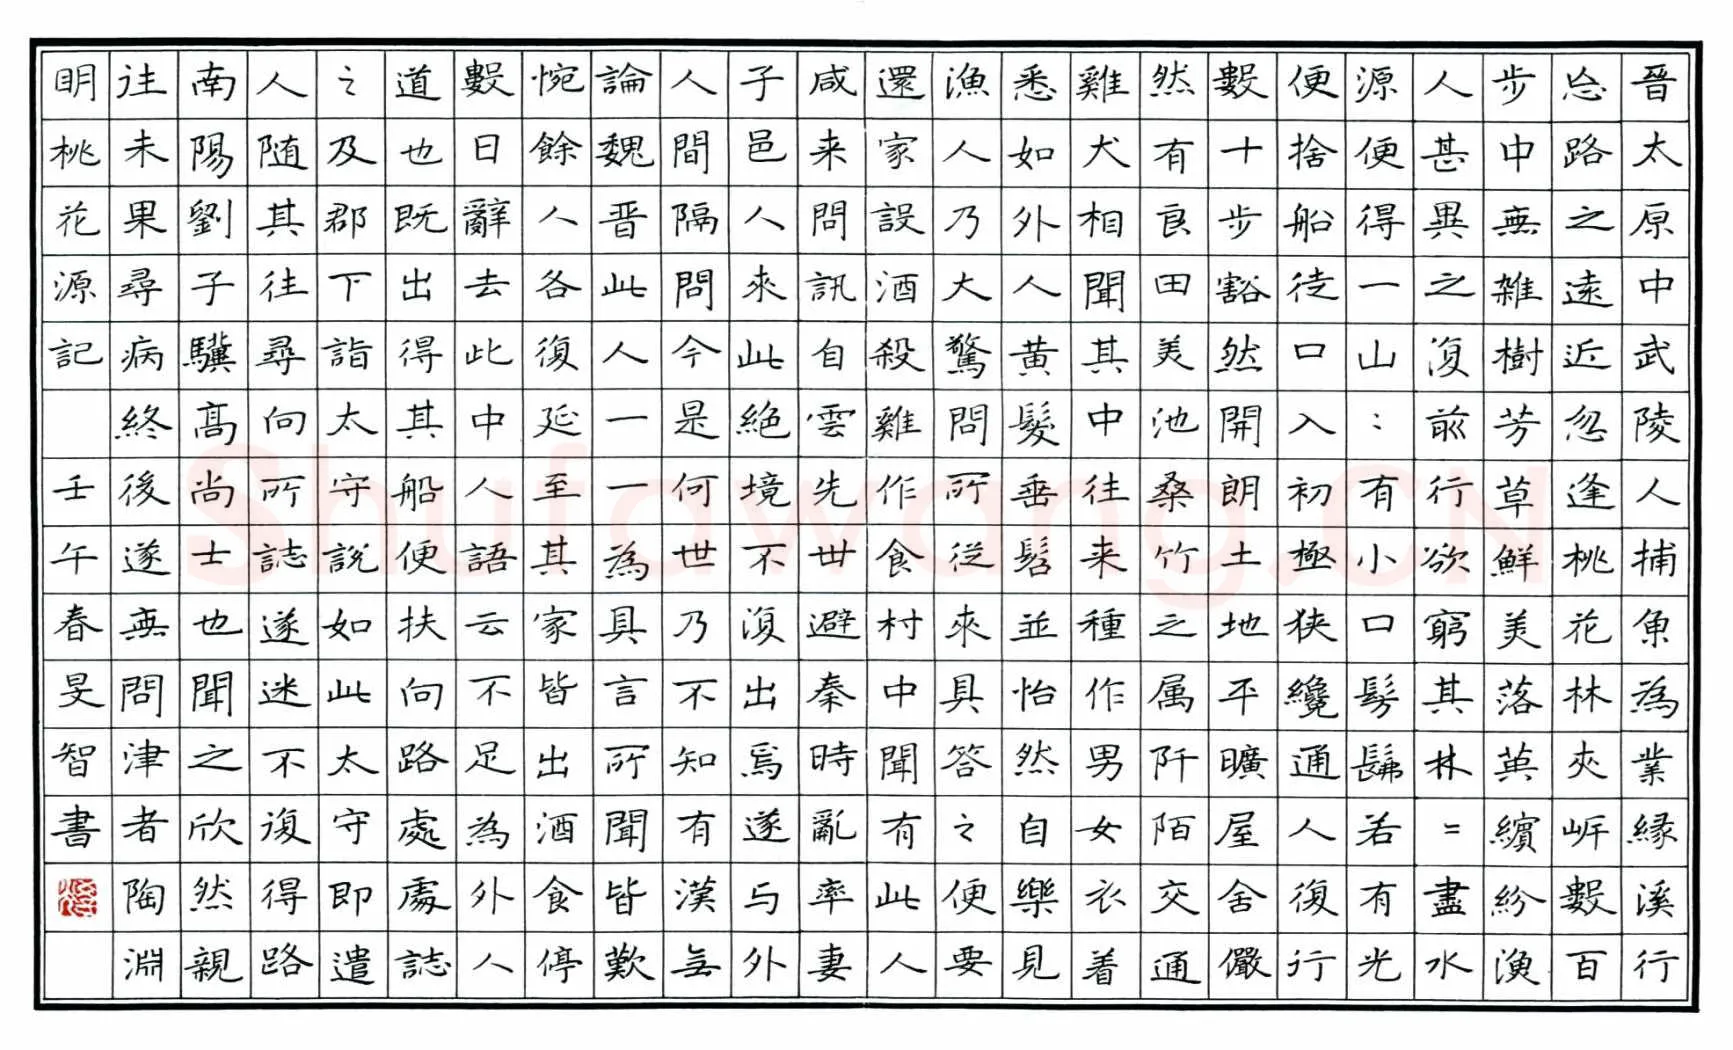 晋太原中武陵人捕魚為業緣溪行
忘路之遠近忽逢桃花林夾岸數百
步中無雜樹芳草鮮美落英繽紛漁
人甚異之復前行欲窮其林=盡水
源便得一山:有小口髣髴若有光
便捨船從口入初極狹纔通人復行
數十步豁然開朗土地平曠屋舍儼
然有良田美池桑竹之属阡陌交通
雞犬相聞其中往来種作男女衣着
悉如外人黄髮垂髫並怡然自樂見
漁人乃大驚問所從來具答之便要
還家設酒殺雞作食村中聞有此人
咸来問訊自雲先世避秦時亂率妻
子邑人來此絶境不復出焉遂与外
人間隔問今是何世乃不知有漢無
論魏晋此人一一為具言所聞皆歎
惋餘人各復延至其家皆出酒食停
數日辭去此中人語云不足為外人
道也既出得其船便扶向路處處誌
之及郡下詣太守説如此太守即遣
人随其往尋向所誌遂迷不復得路
南陽劉子驥髙尚士也聞之欣然親
往未果尋病終後遂無問津者陶淵
明桃花源記 壬午春旻智書
Shufawang.CN